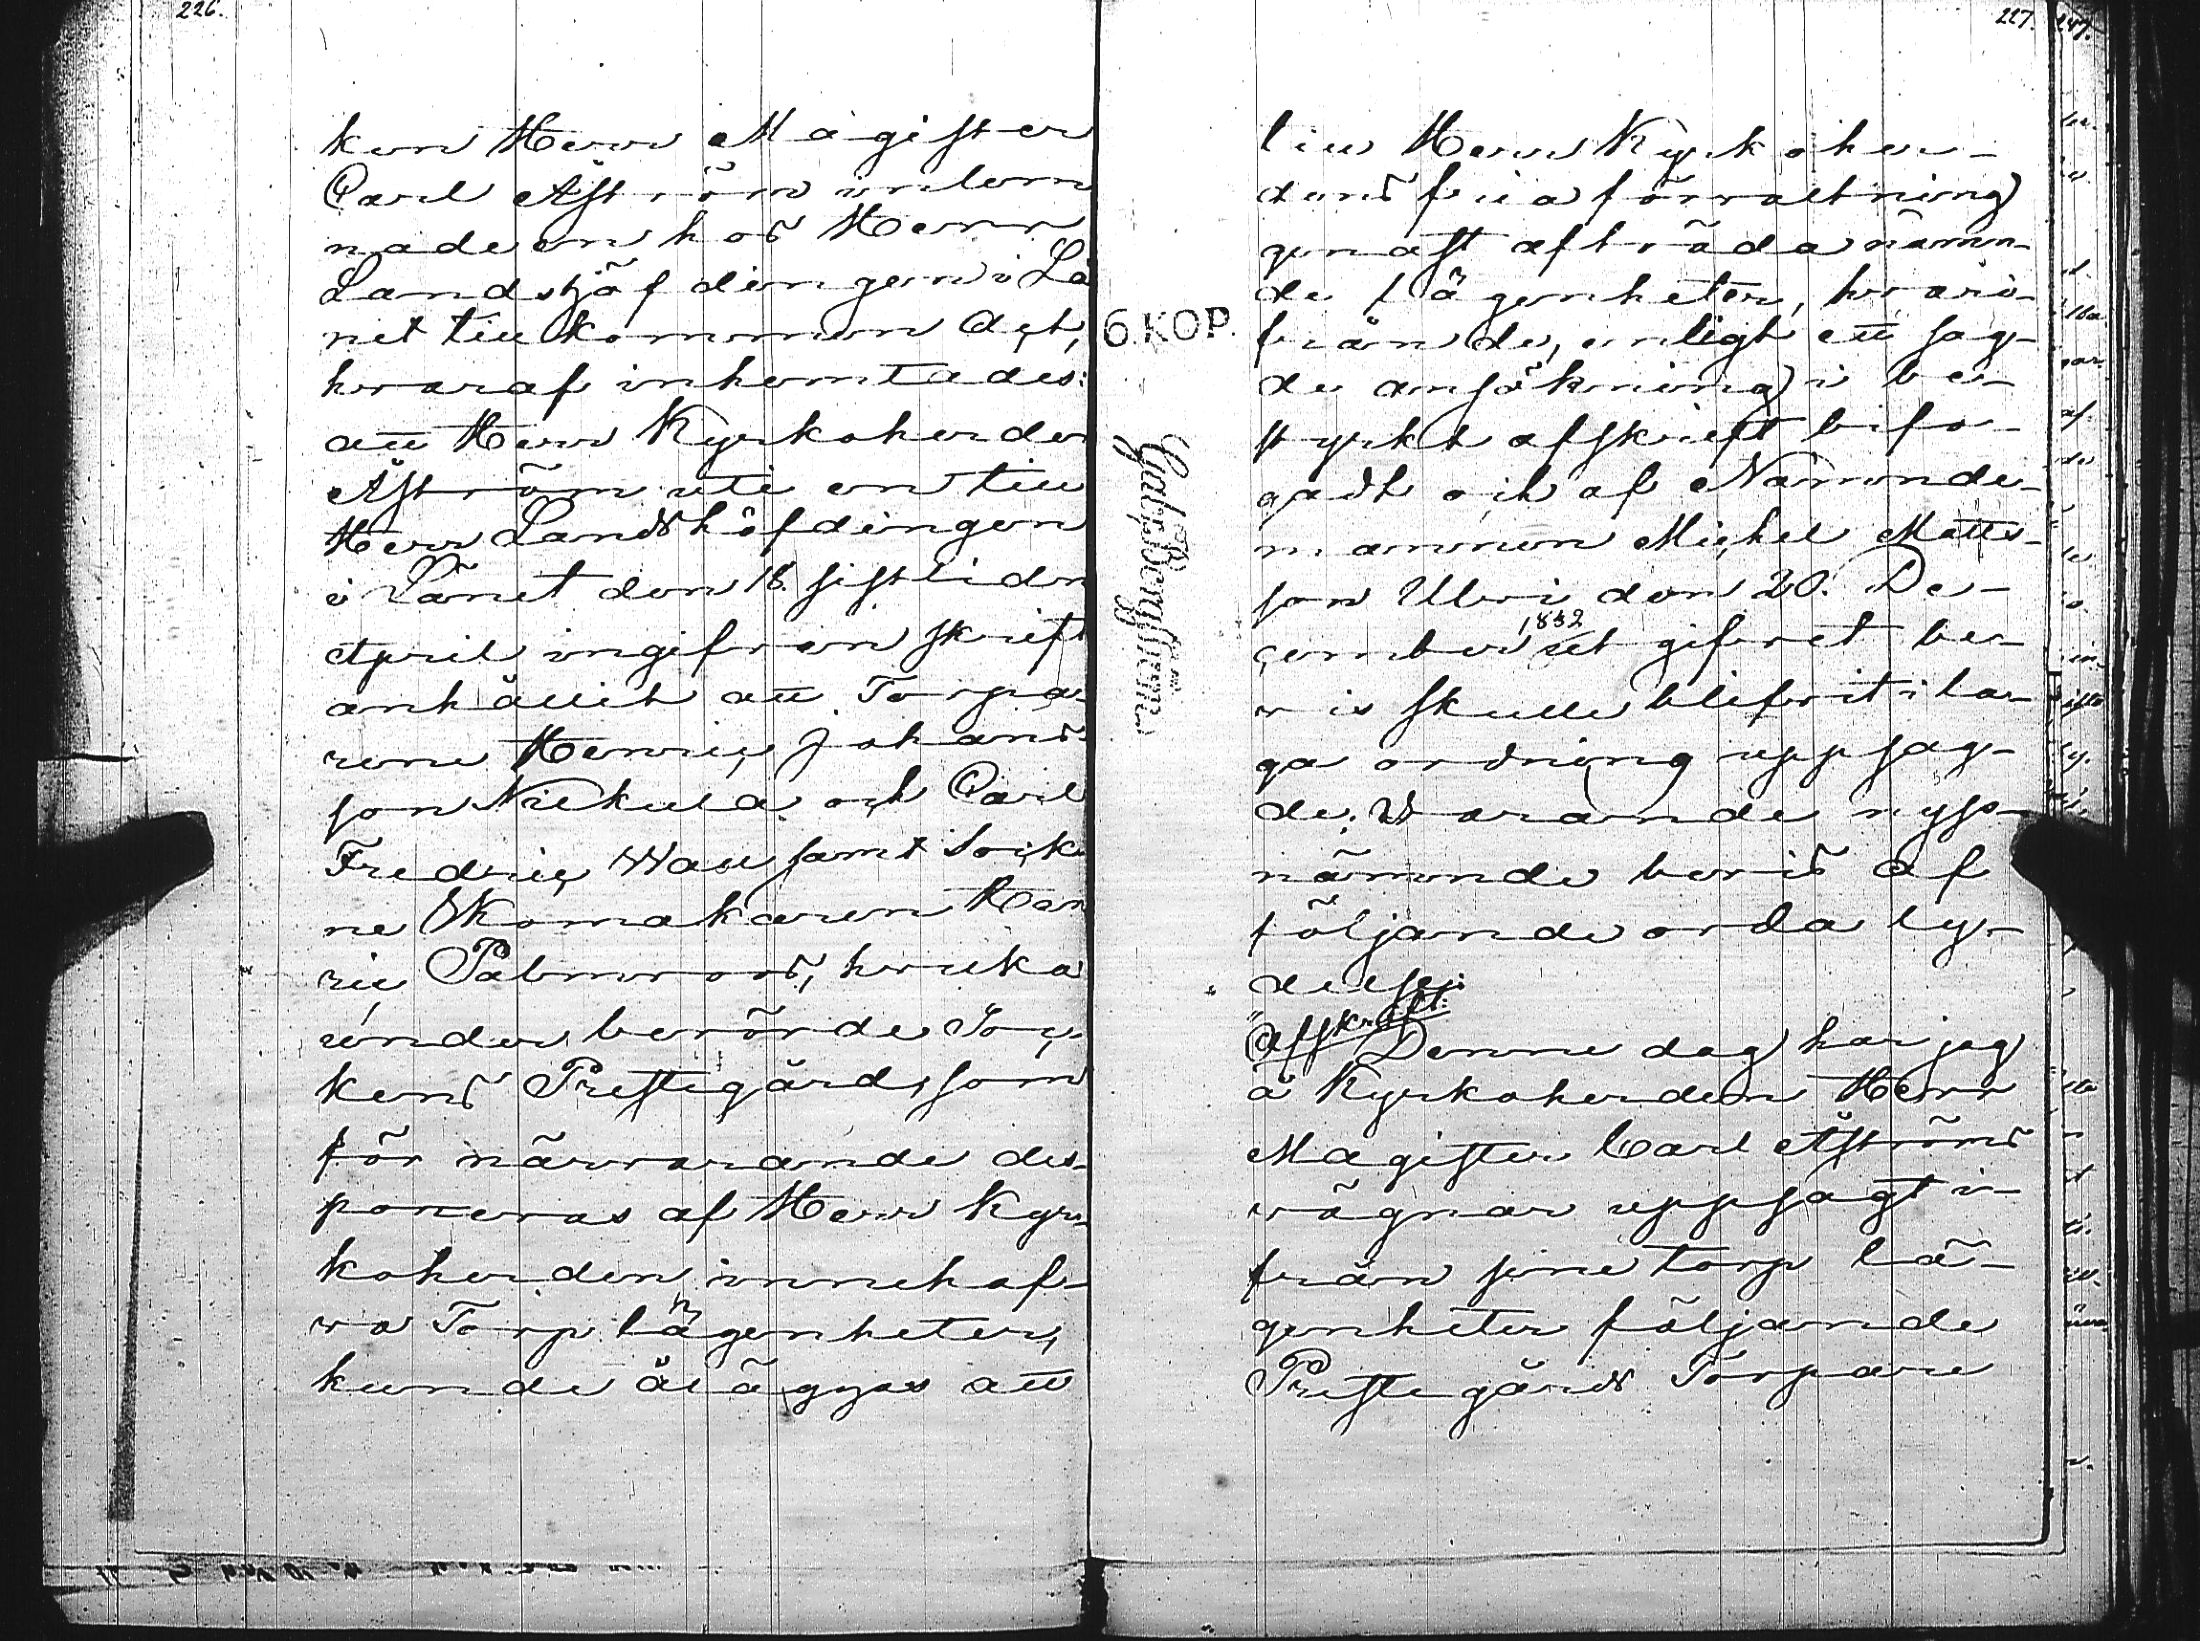 226.
ken Herr Magister
Carl Åström inlem
nade en hos Herr
Landshöfdingen i Lä
net till kommen Act,
hvaraf inhemtades:
att Herr Kyrkoherden
Åström uti en till
Herr Landshöfdingen
i Länet den 18. sistlidn
April ingifven skrift
anhållit att Torpa-
rene Henric Johans-
son Niekula och Carl
Fredric Wall samt Sock
ne Skomakaren Hen
ric Palmroos, hvilka
under berörde Soc-
kens Prestegård, som
för närvarande dis-
poneras af Herr Kyr-
koherden innehaf-
va Torp lägenheter,
kunde åläggas att
227.
247.
till Herr Kyrkoher-
dens fria förvaltning
genast afträda nämn-
de lägenheter, hvari-
från de, enligt ett sag-
de ansökning i be-
styrkt afskrift bifo-
gadt och af Nämnde-
mannen Michel Matts-
son Ulvi den 20. De-
cember 1832 utgifvet be-
vis skulle blifvit i la-
ga ordning uppsag-
de; Varande nyss-
nämnde bevis af
följande orda ly-
delse:
Afskrift:
Denne dag har jag
å Kyrkoherden Herr
Magister Carl Åströms
vägnar uppsagt i-
från sine torp lä-
genheter följande
Prestegårds Torpare
6.KOP.